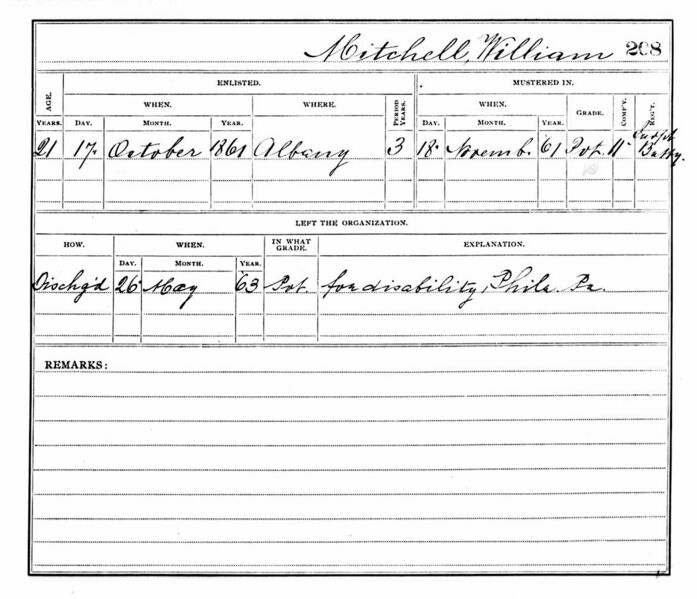 Mitchell, William 208
ENLISTED. MUSTERED IN.
AGE. WHEN. WHERE. PERIOD YEARS. WHEN. GRADE. COMP'Y. REG'T.
YEARS. DAY. MONTH. YEAR. DAY. MONTH. YEAR.
Indpt
21 17. October 1861 Albany 3 18. Novemb. 61 Pvt. 11" Batty.
LEFT THE ORGANIZATION.
HOW. WHEN. IN WHAT GRADE. EXPLANATION.
DAY. MONTH. YEAR.
Dischg'd 26 May 63 Pvt. for disability, Phila. Pa.
REMARKS: